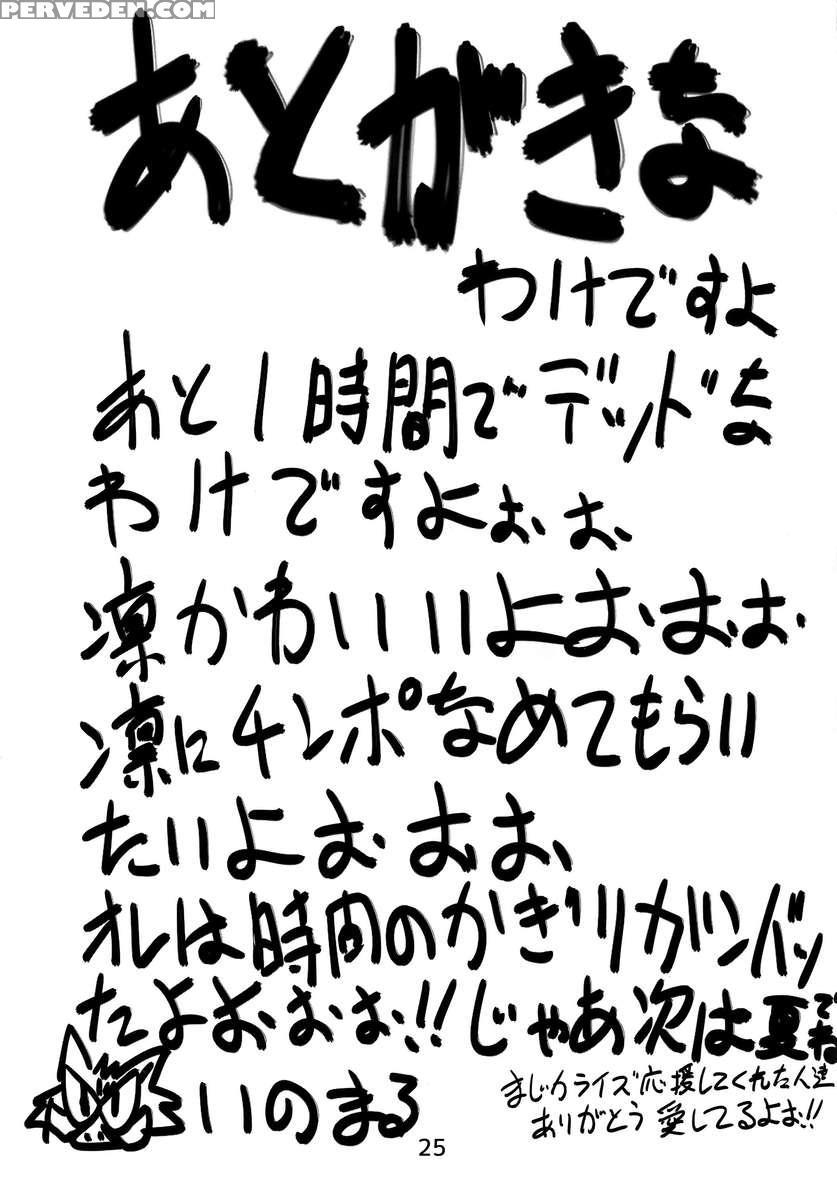 PERVEDEN.COM
あとがきな
わけですよ
あと1時間でデッドな
わけですよぉぉ
凛かわいいよおおぉ
凛にチンポなめてもらい
たいよおおぉ、
オレは時間のかぎりガンバッ
たよおぉぉ!!じゃあ次は夏でね
いのまる
まじカライズ応援してくれた人達
ありがとう愛してるよぉ!!
25